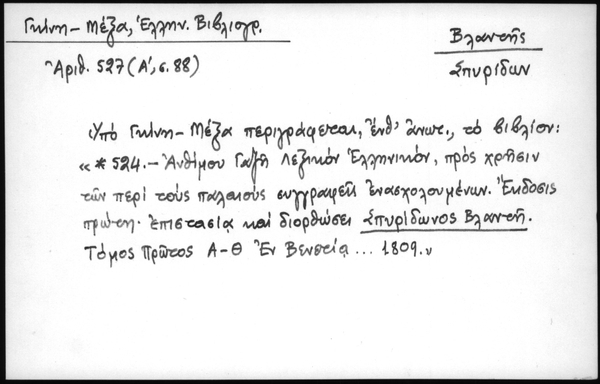 Γκίνη - Μέξα, Ἑλλην. Βιβλιογρ.
Βλαντῆς
Σπυρίδων
Ἀριθ. 527 (Α', σ. 88)
Ὑπὸ Γκίνη - Μέξα περιγράφεται, ἔνθ' ἄνωτ., τὸ βιβλίον:
« * 524. - Ἀνθίμου Γαζῆ Λεξικὸν Ἑλληνικόν, πρὸς χρῆσιν
τῶν περὶ τοὺς παλαιοὺς συγγραφεῖς ἐνασχολουμένων. Ἔκδοσις
πρώτη· ἐπιστασίᾳ καὶ διορθώσει Σπυρίδωνος Βλαντῆ.
Τόμος Πρῶτος Α - Θ Ἐν Βενετίᾳ ... 1809.»